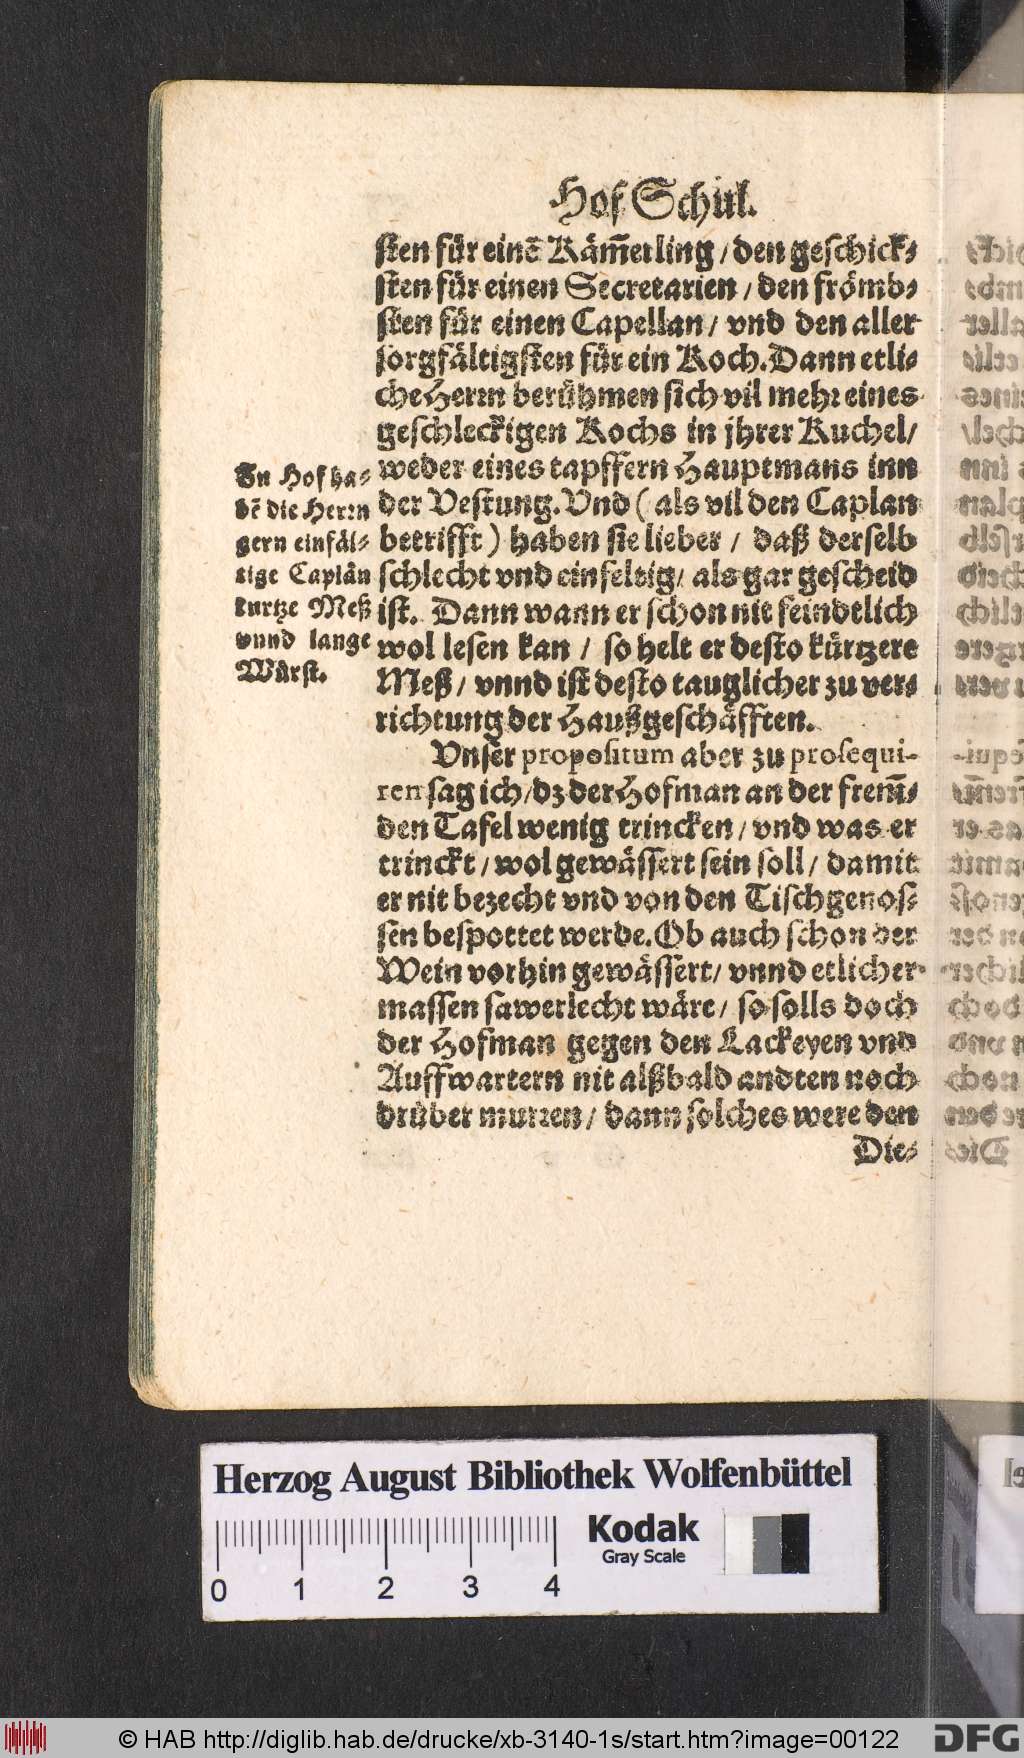 Hof Schul.
sten für einē Käm̄erling / den geschick-
sten für einen Secretarien / den frömb-
sten für einen Capellan / vnd den aller
sorgfältigsten für ein Koch. Dann etli-
che Herrn berühmen sich vil mehr eines
geschleckigen Kochs in jhrer Kuchel /
weder eines tapffern Hauptmans inn
der Vestung. Vnd ( als vil den Caplan
betrifft ) haben sie lieber / daß derselb
schlecht vnd einfeltig / als gar gescheid
ist. Dann wann er schon nit feindtlich
wol lesen kan / so helt er desto kürtzere
Meß / vnnd ist desto tauglicher zu ver-
richtung der Haußgeschäfften.
Zu Hof ha-
bē die Herrn
gern einfäl-
tige Caplän
kurtze Meß
vnnd lange
Würst.
Vnser propositum aber zu prosequi-
ren sag ich / dz der Hofman an der frem̄-
den Tafel wenig trincken / vnd was er
trinckt / wol gewässert sein soll / damit
er nit bezecht vnd von den Tischgenos-
sen bespottet werde. Ob auch schon der
Wein vorhin gewässert / vnnd etlicher
massen sawerlecht wäre / so solls doch
der Hofman gegen den Lackeyen vnd
Auffwartern nit alßbald andten noch
drüber murren / dann solches were den
Die-
Herzog August Bibliothek Wolfenbüttel
0 1 2 3 4
Kodak
Gray Scale
© HAB http://diglib.hab.de/drucke/xb-3140-1s/start.htm?image=00122
DFG